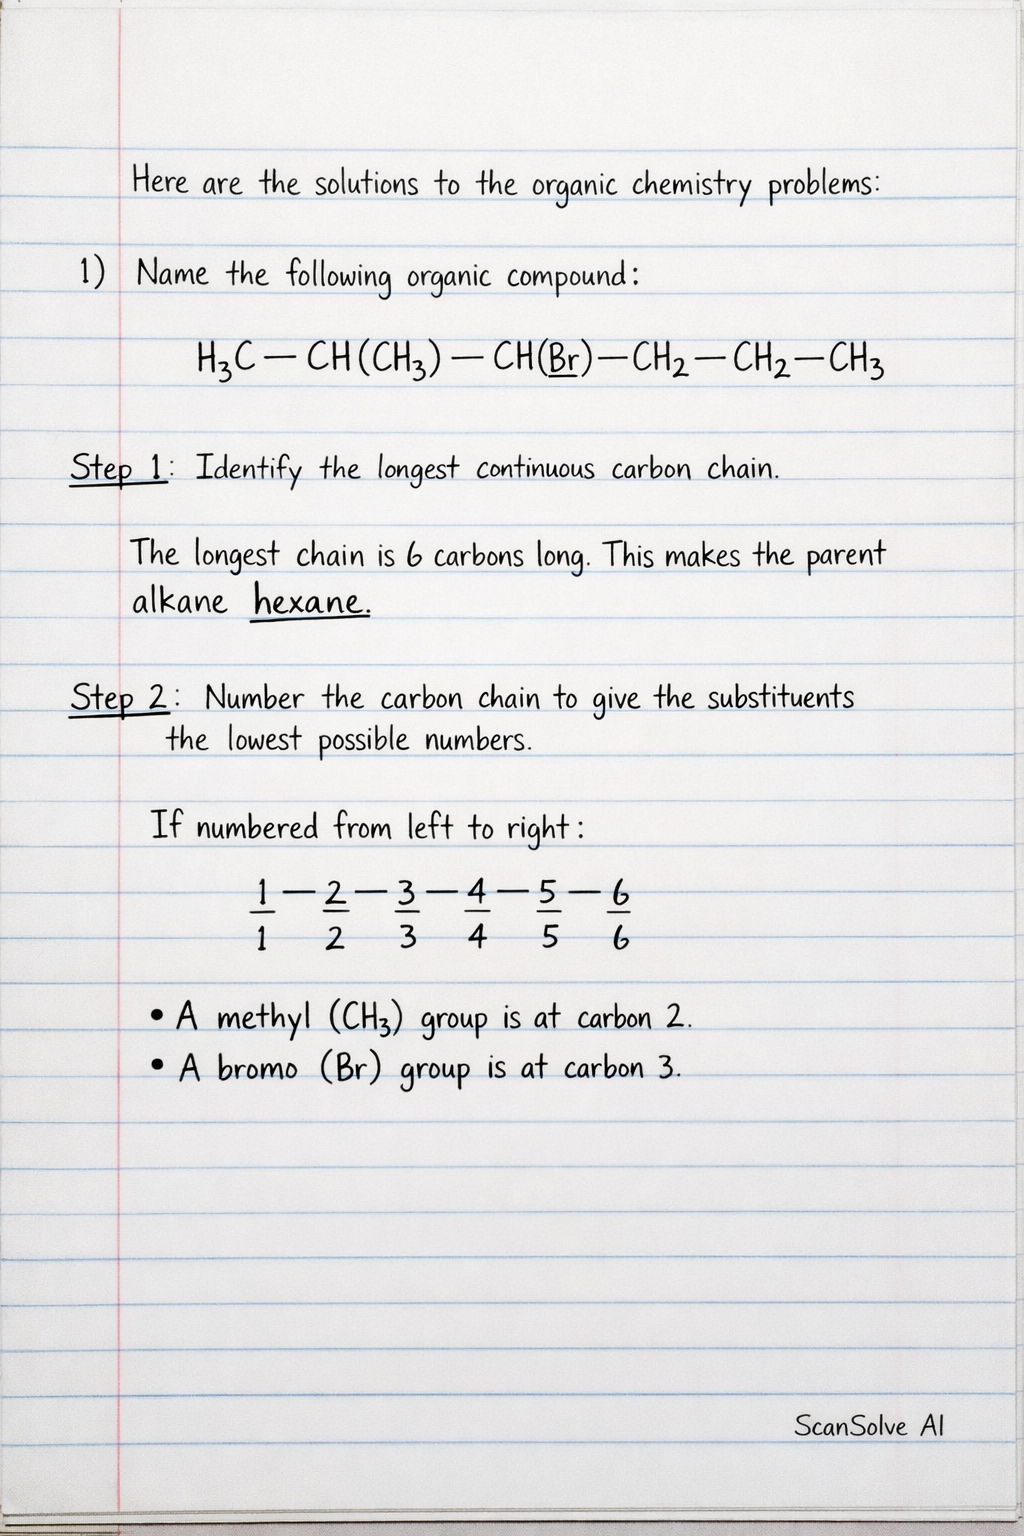 Here are the solutions to the organic chemistry problems:
1) Name the following organic compound:
H₃C — CH(CH₃) — CH(Br) — CH₂ — CH₂ — CH₃
Step 1: Identify the longest continuous carbon chain.
The longest chain is 6 carbons long. This makes the parent
alkane hexane.
Step 2: Number the carbon chain to give the substituents
the lowest possible numbers.
If numbered from left to right:
1 — 2 — 3 — 4 — 5 — 6
1 2 3 4 5 6
• A methyl (CH₃) group is at carbon 2.
• A bromo (Br) group is at carbon 3.
ScanSolve AI